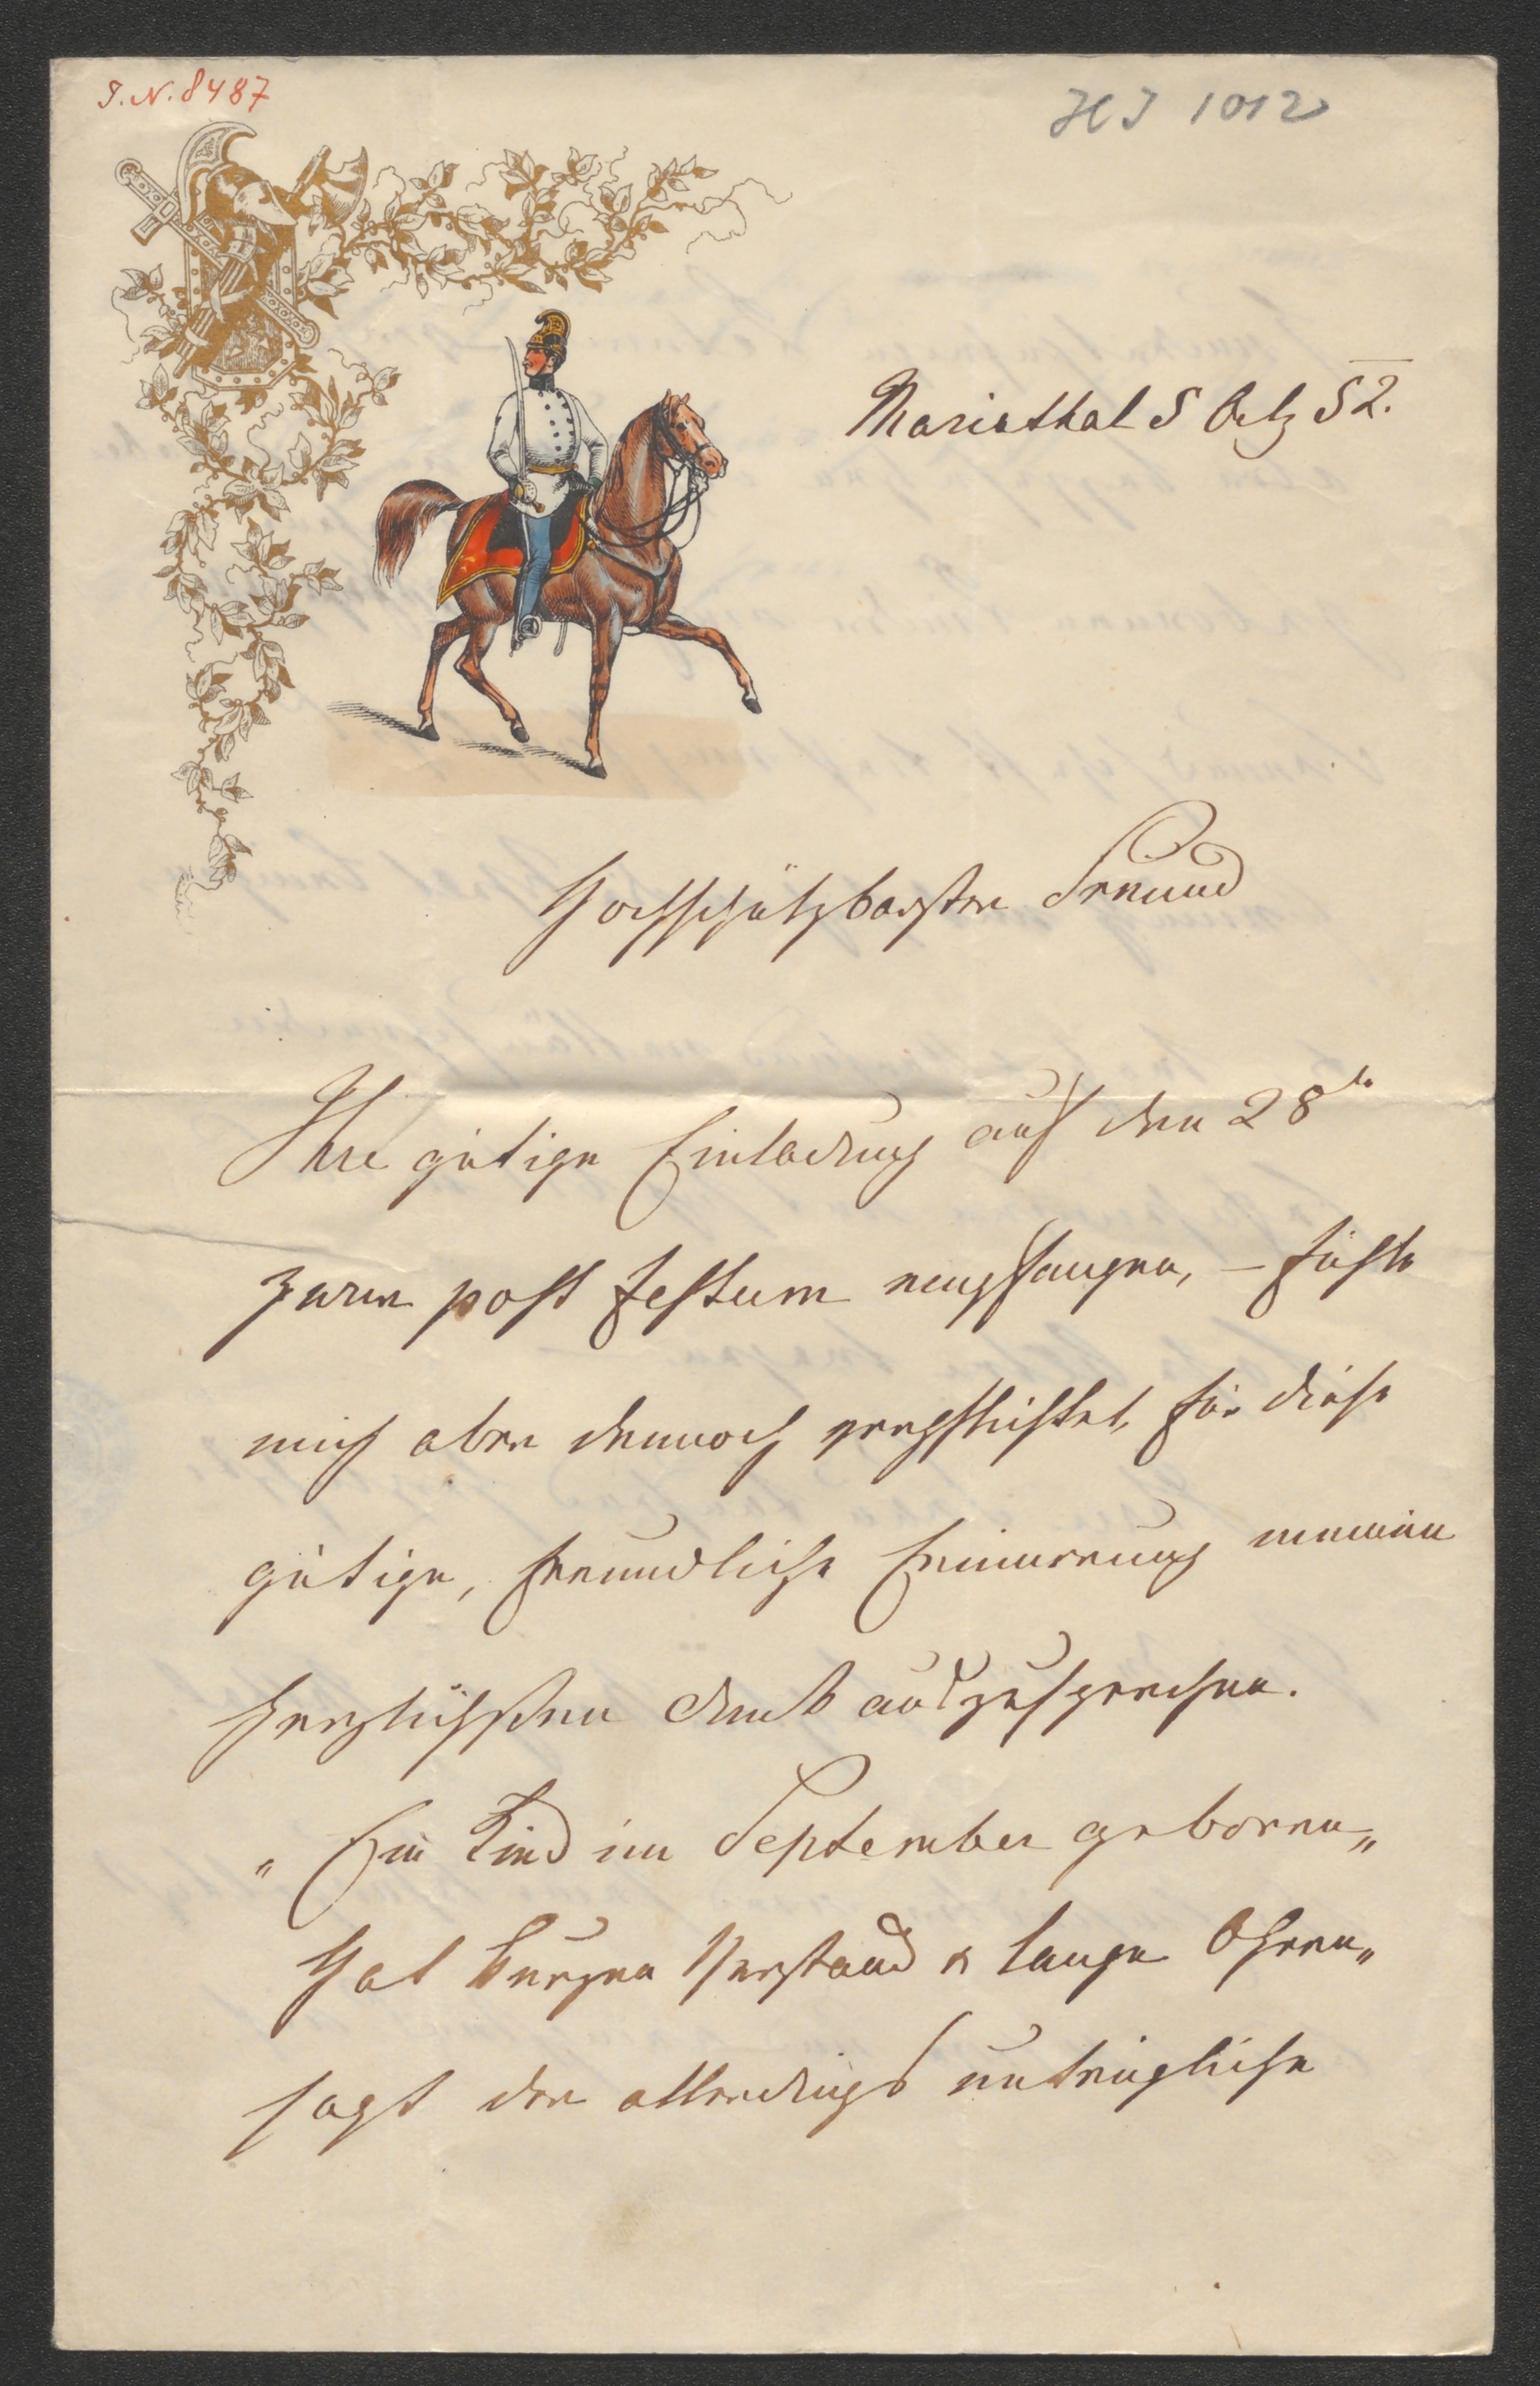 I.N. 8487
HJ 1012
Mariathal 5 52.
Hochschätzbarster Freund
Ihre gütige Einladung auf den 28t
zwar post festum empfangen, – fühle
mich aber dennoch verpflichtet, für diese
gütige, freundliche Erinnerung meinen
herzlichsten Dank auszusprechen.
„Ein Kind im September geboren„
Hat kurzen Verstand & lange Ohren„
sagt der allerdings untrügliche